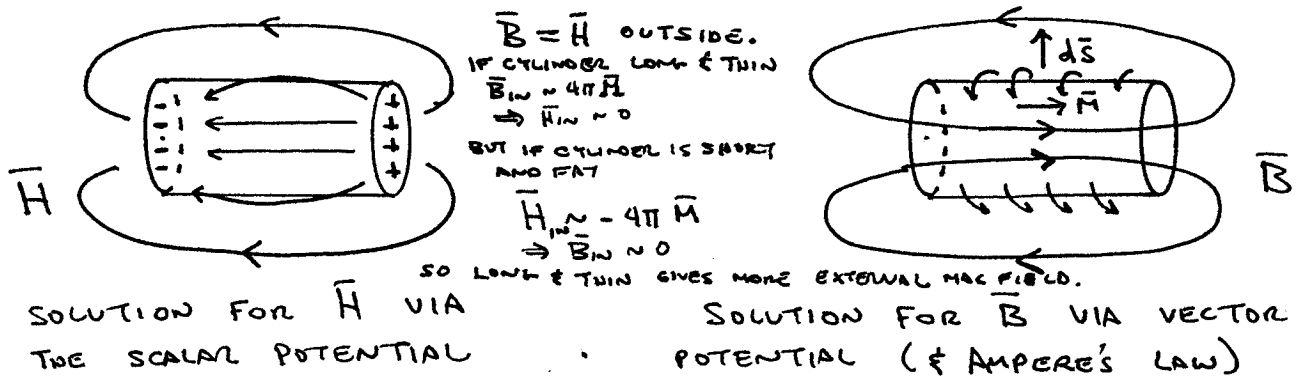 B̄ = H̄ OUTSIDE.
IF CYLINDER LONG & THIN
B̄IN ~ 4π M̄
⇒ H̄IN ~ 0
BUT IF CYLINDER IS SHORT
AND FAT
H̄IN ~ - 4π M̄
⇒ B̄IN ~ 0
SO LONG & THIN GIVES MORE EXTERNAL MAG FIELD.
H̄
- - - -
+ + + +
dS̄
M̄
B̄
SOLUTION FOR H̄ VIA
THE SCALAR POTENTIAL .
SOLUTION FOR B̄ VIA VECTOR
POTENTIAL (& AMPERE'S LAW)